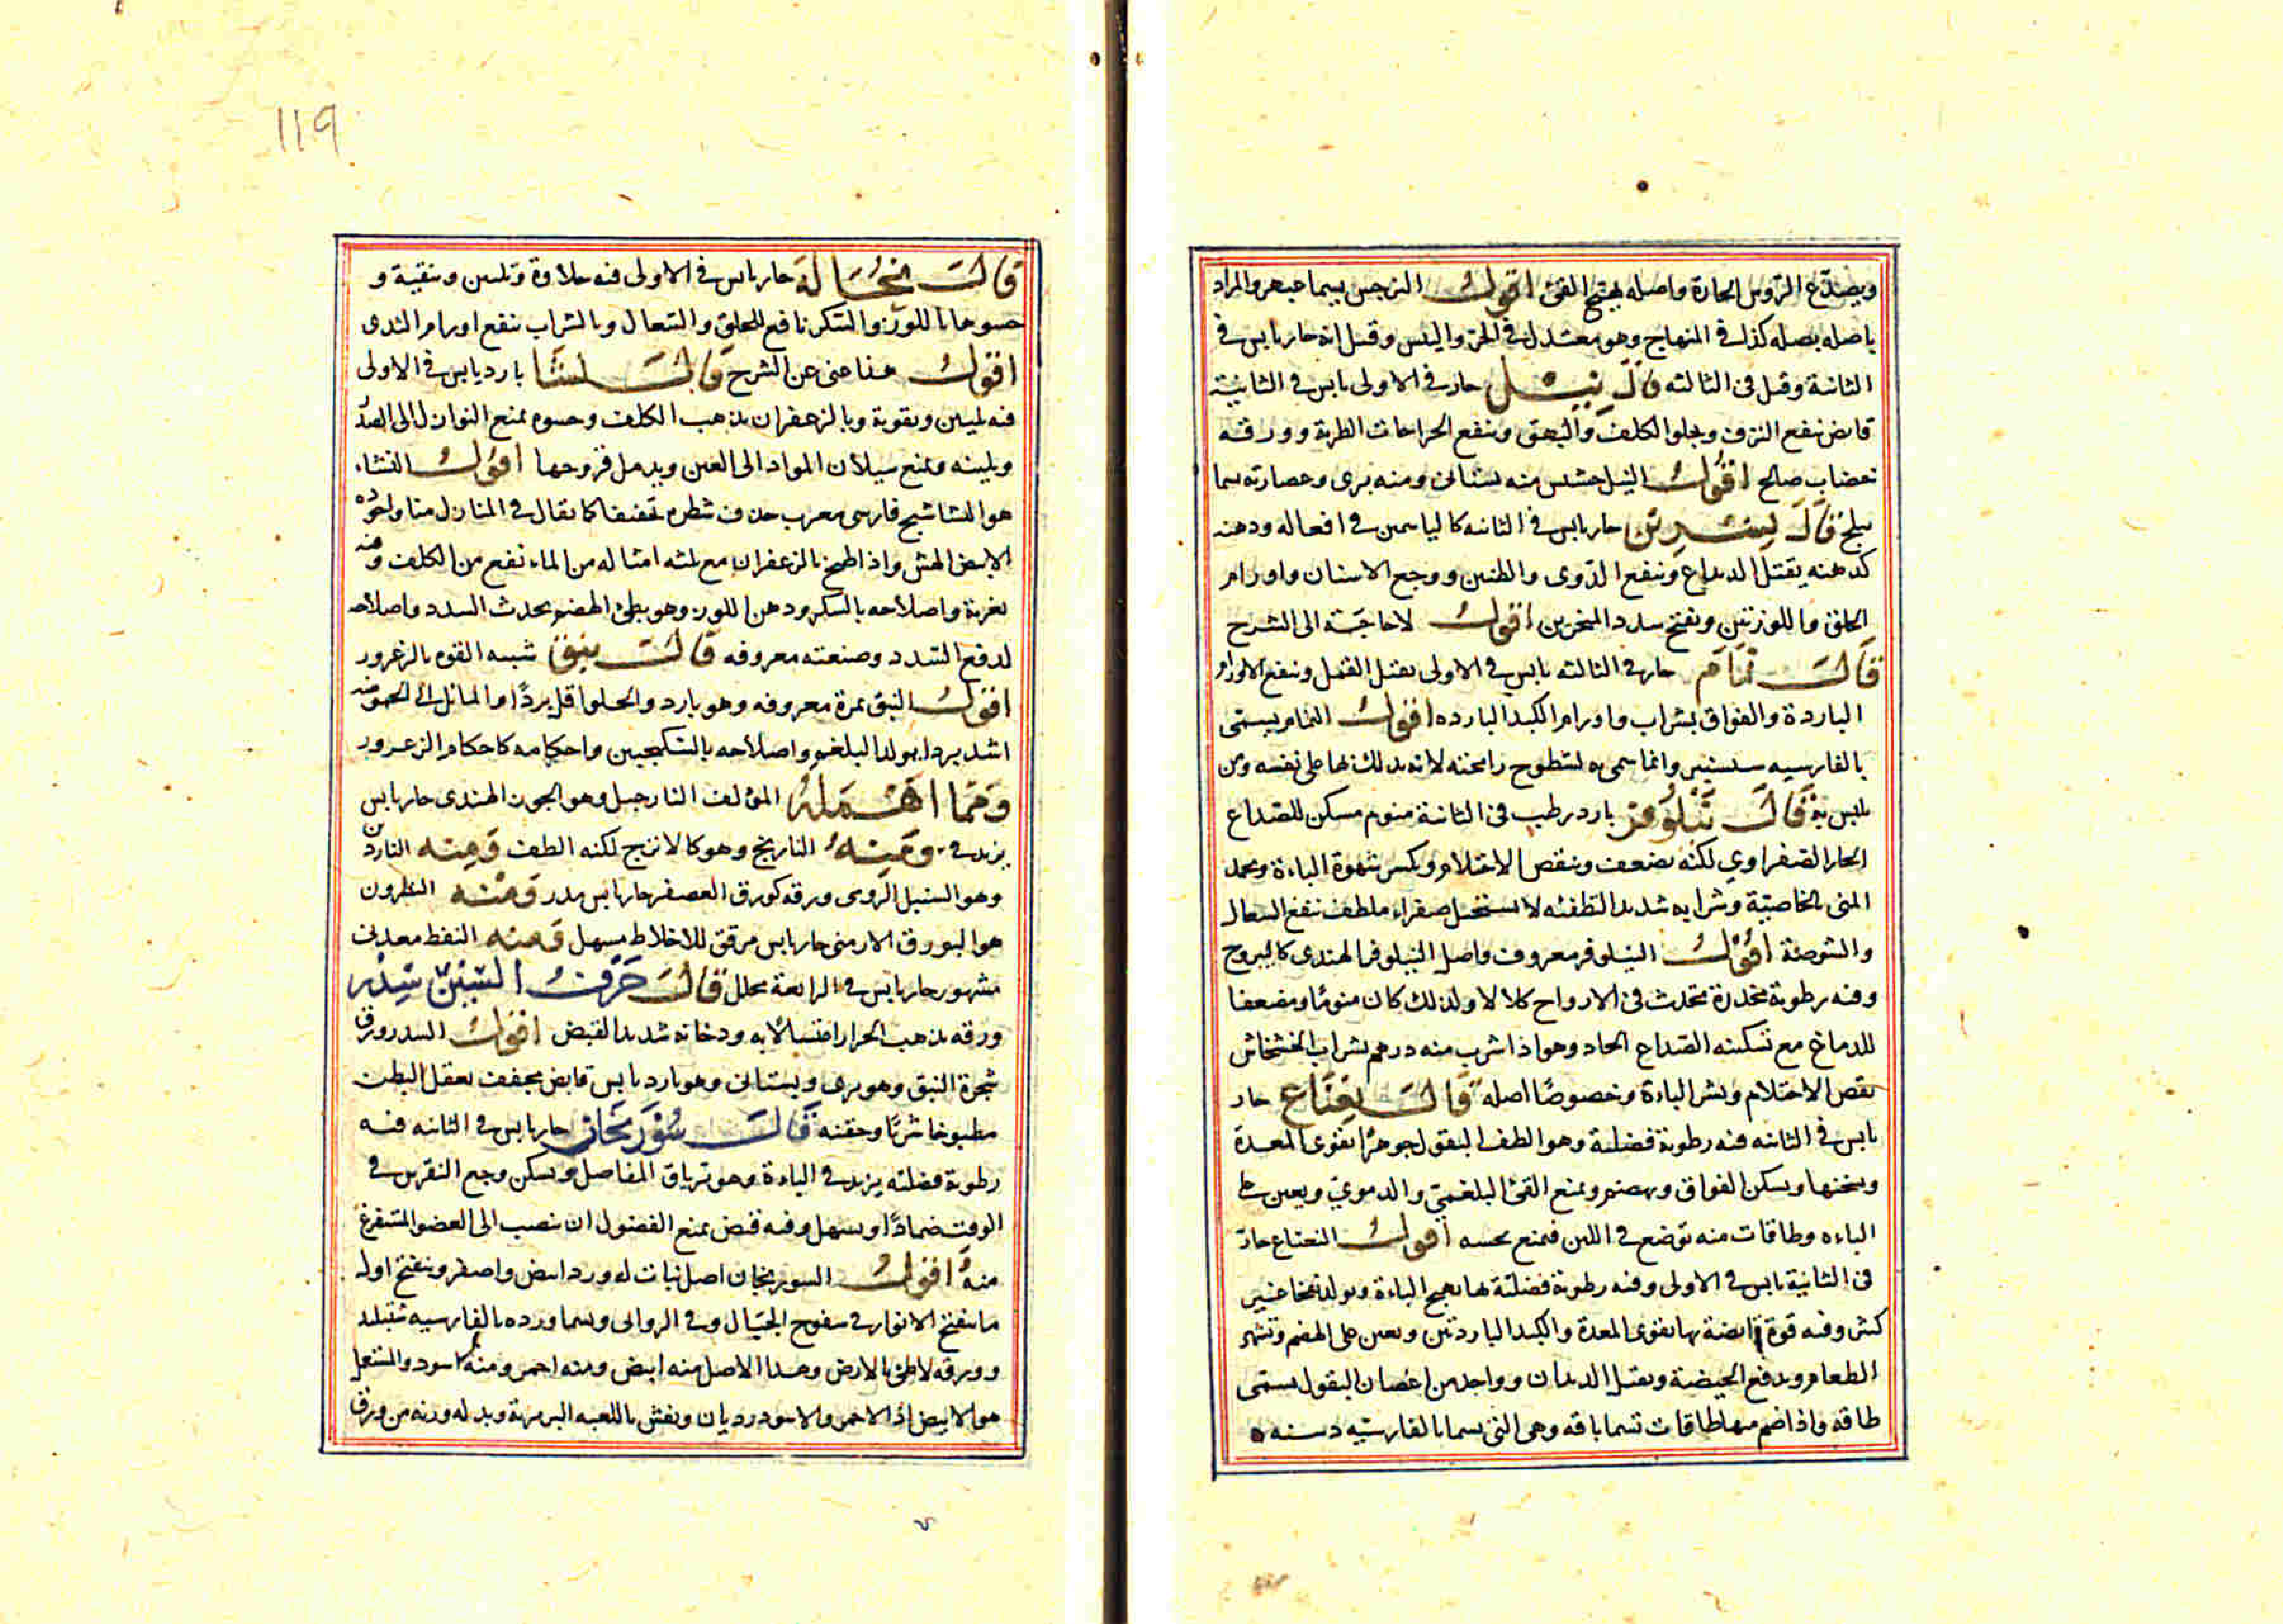 ويصدّع الرؤس الحارة واصله يهيج القئ اقول النرجس يسما عبهر والمراد
باصله بصله كذا في المنهاج وهو معتدل في الحر واليبس وقيل انه حار يابس في
الثانية وقيل في الثالثه قال نيل حار في الاولى يابس في الثانية
قابض ينفع النزف ويجلو الكلف والبهق وينفع الجراحات الطرية وورقه
نعضاب صالح اقول النيل جنس منه بستاني ومنه بري وعصارته يسما
نيلج قال نسرين حار يابس في الثانيه كالياسمين في افعاله ودهنه
كدهنه يقتل الديداع وينفع الدوى والطنين ووجع الاسنان واورام
الحلق واللوزتين ويفتح سدد المنخرين اقول لا حاجة الى الشرح
قال نمام حار في الثالثه يابس في الاولى يقتل القمل وينفع الاورام
الباردة والفواق بشراب واورام الكبد البارده اقول النمام يسمى
بالفارسيه سيسنبر وانما سمي به لسطوح رائحته لانه يدل بها على نفسه ومن
يلبس به قال نيلوفر بارد رطب في الثانية منوم مسكن للصداع
الحار الصفراوي لكنه يضعف وينقص الاحتلام ويكسر شهوة الباءة ويجمد
المنى بالخاصية وشرابه شديد التطفئه لا يستحيل صفراء ملطف ينفع السعال
والشوصة اقول النيلوفر معروف واصل النيلوفر الهندى كاليبروج
وفيه رطوبة مخدرة تحدث في الارواح كلالا ولذلك كان منوما ومضعفا
للدماغ مع تسكينه الصداع الحاد وهو اذا شرب منه درهم بشراب الخشخاش
نقص الاحتلام وكسر الباءة وخصوصا اصله قال نعناع حار
يابس في الثانيه فيه رطوبة فضلية وهو الطف البقول جوهرا يقوى المعدة
ويسخنها ويسكن الفواق ويهضم ويمنع القئ البلغمي والدموي ويعين على
الباءه وطاقات منه توضع في اللبن فيمنع تجبنه اقول النعناع حار
في الثانية يابس في الاولى وفيه رطوبة فضلية بها يهيج الباءة ويولد نفخا غير
كثير وفيه قوة قابضة بها يقوى المعدة والكبد الباردتين ويعين على الهضم وتشهى
الطعام ويدفع الهيضة ويقتل الديدان وواحد من اغصان البقول يسمى
طاقه واذا ضم منها طاقات تسما باقه وهى التى يسما بالفارسيه دسته
119
قال نخالة حار يابس في الاولى فيه حلاوة وتليين وتنقية و
حسوها باللوز والسكر نافع للحلق والسعال وبالشراب ينفع اورام الثدى
اقول هذا غنى عن الشرح قال نشا بارد يابس في الاولى
فيه تليين وتقوية وبالزعفران يذهب الكلف وحسوه يمنع النوازل الى الصدر
ويلينه ويمنع سيلان المواد الى العين ويدمل قروحها اقول النشاء
هو النشاشتج فارسى معرب حذف شطره تخفيفا كما يقال في المنازل منا واجوده
الابيض الهش واذا طبخ بالزعفران مع ثلثه امثاله من الماء نفع من الكلف وفيه
تغرية واصلاحه بالسكر ودهن اللوز وهو بطئ الهضم يحدث السدد واصلاحه
لدفع السدد وصنعته معروفه قال نبق شبيه القوه بالزعرور
اقول النبق ثمرة معروفه وهو بارد والحلو اقل بردا والمائل الى الحموضه
اشد بردا يولد البلغم واصلاحه بالسكنجبين واحكامه كاحكام الزعرور
ومما اهمله المؤلف النارجيل وهو الجوز الهندى حار يابس
يزيد في ومنه النارنج وهو كالاترج لكنه الطف ومنه الناردين
وهو السنبل الرومى ورقه كورق العصفر حار يابس مدر ومنه النطرون
هو البورق الارمنى حار يابس مرقق للاخلاط مسهل ومنه النفط معدنى
مشهور حار يابس في الرابعة محلل قال حرف السين سدر
ورقه يذهب الحرار اغتسالا به ودخانه شديد القبض اقول السدر ورق
شجرة النبق وهو برى وبستانى وهو بارد يابس قابض مجفف يعقل البطن
مطبوخا شربا وحقنه قال سورنجان حار يابس في الثانيه فيه
رطوبة فضلية يزيد في الباءة وهو ترياق المفاصل ويسكن وجع النقرس في
الوقت ضمادا ويسهل وفيه قبض يمنع الفضول ان تنصب الى العضو المستفرغ
منه اقول السورنجان اصل نبات له ورد ابيض واصفر ويتفتح اول
ما يتفتح الانوار في سفوح الجبال وفي الروابى ويسما ورده بالفارسيه شنبليد
وورقه لاطئ بالارض وهذا الاصل منه ابيض ومنه احمر ومنه اسود والمستعمل
هو الابيض اذ الاحمر والاسود رديان ويغش باللعبه البربرية وبدله وزنه من ورق